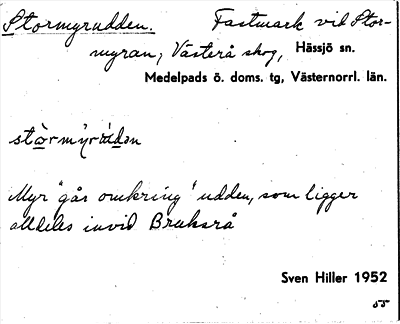 Stormyrudden. Fastmark vid Stor-
myran, Västerå skog, Hässjö sn.
Medelpads ö. doms. tg, Västernorrl. län.
Myr "går omkring" udden, som ligger
alldeles invid Bruksrå
Sven Hiller 1952